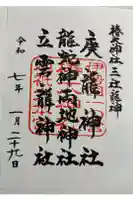 椿大神社三社龍神
庚龍神社
龍蛇神両地神社
立雲龍神社
令和七年一月二十九日